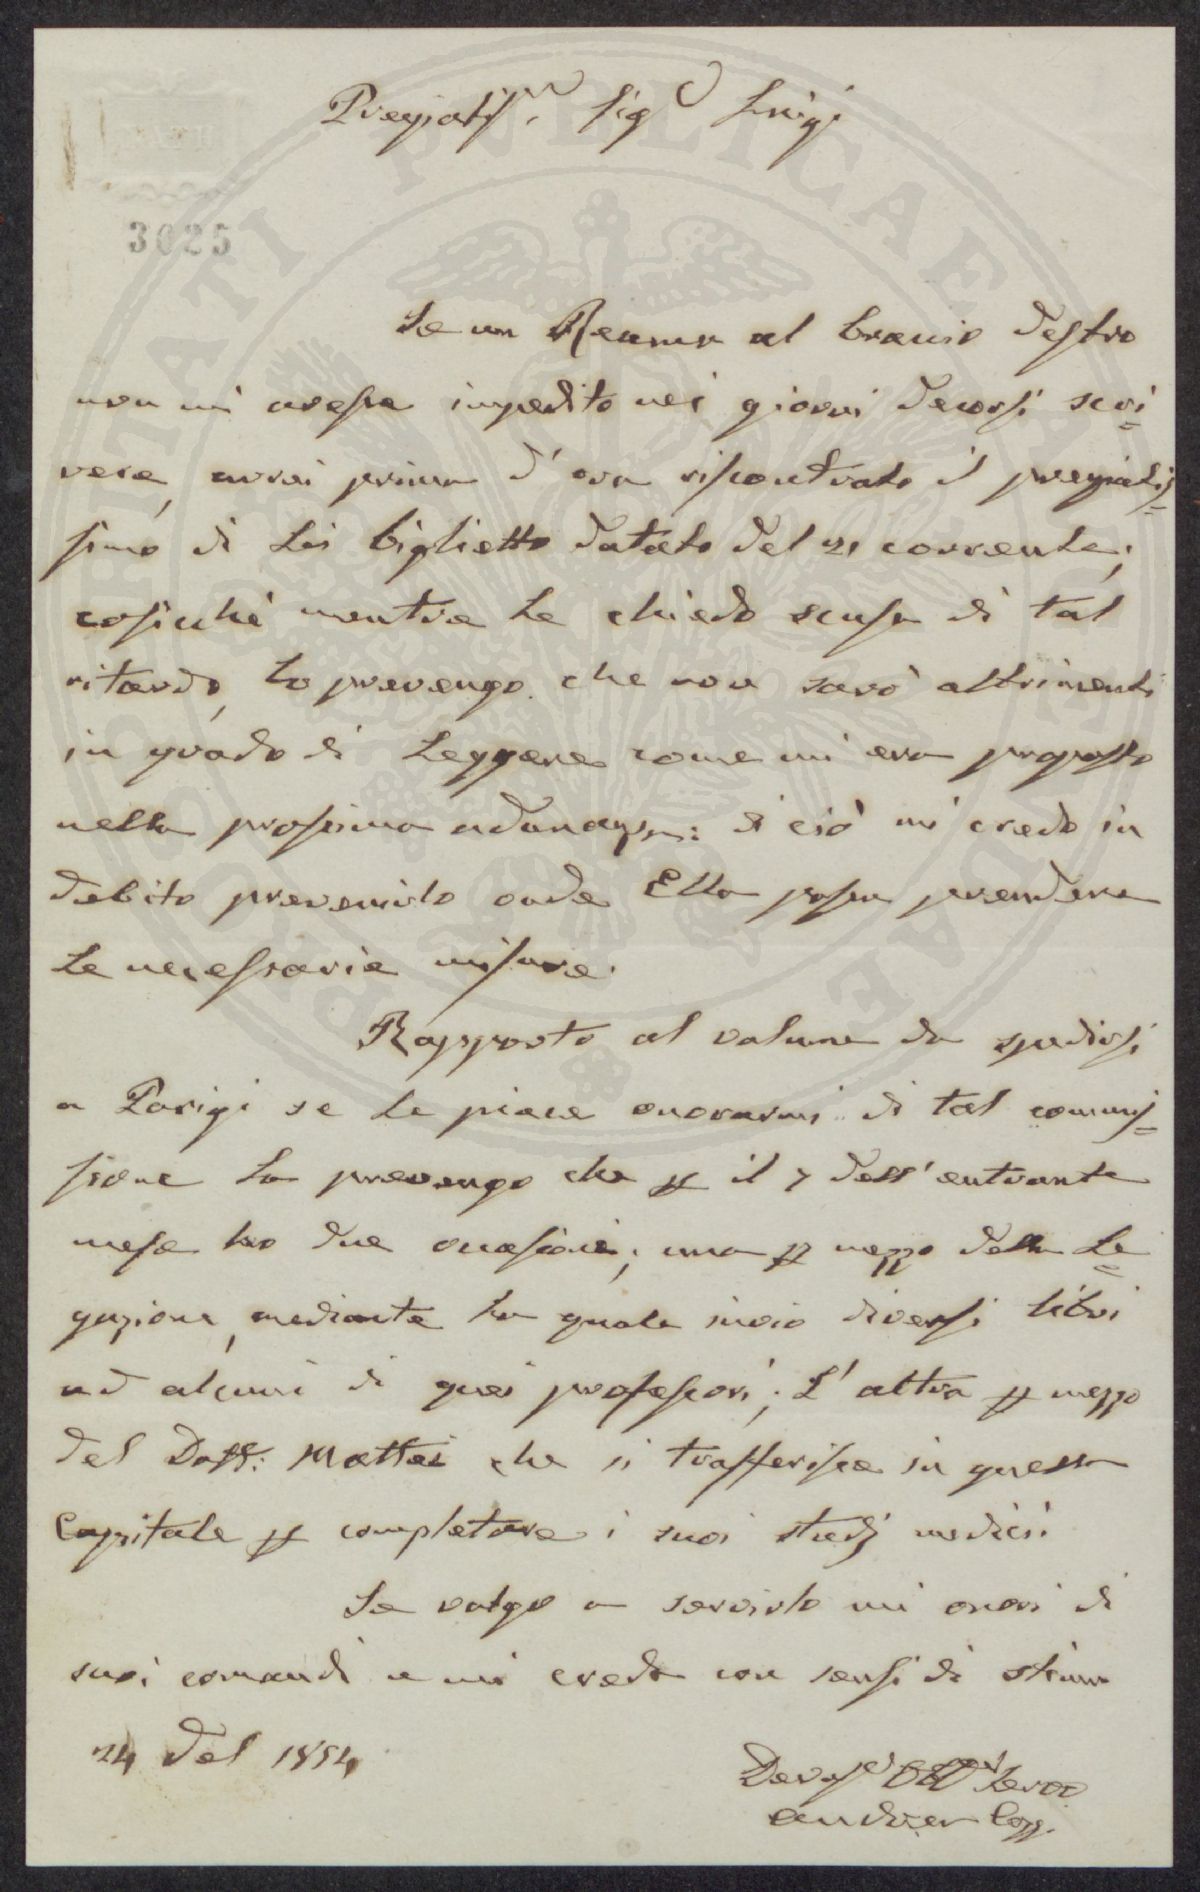 Pregiatiss. Sig. Luigi
3025
Se un Reuma al braccio destro
non mi avesse impedito nei giorni decorsi scri=
vere, avrei prima d'ora riscontrato il pregiatis=
simo di Lei biglietto datato del 21 corrente;
cosicchè mentre Le chiedo scusa di tal
ritardo, La prevengo che non sarò altrimenti
in grado di Leggere come mi era proposto
nella prossima adunanza: di ciò mi credo in
debito prevenirlo onde Ella possa prendere
Le necessarie misure.
Rapporto al volume da spedirsi
a Parigi se Le piace onorarmi di tal commis=
sione La prevengo che p il 7 dell'entrante
mese ho due occasioni; una p mezzo della Le=
gazione, mediante la quale invio diversi libri
ad alcuni di quei professori; L'altra p mezzo
del Dott: Mattei che si trasferisce in quella
Capitale p completare i suoi studj medici.
Se valgo a servirlo mi onori di
suoi comandi e mi creda con sensi di stima
24 del 1854
Devoss Servo
Andrea Cozz.
PROSPERITATI PUBLICAE AUGENDAE